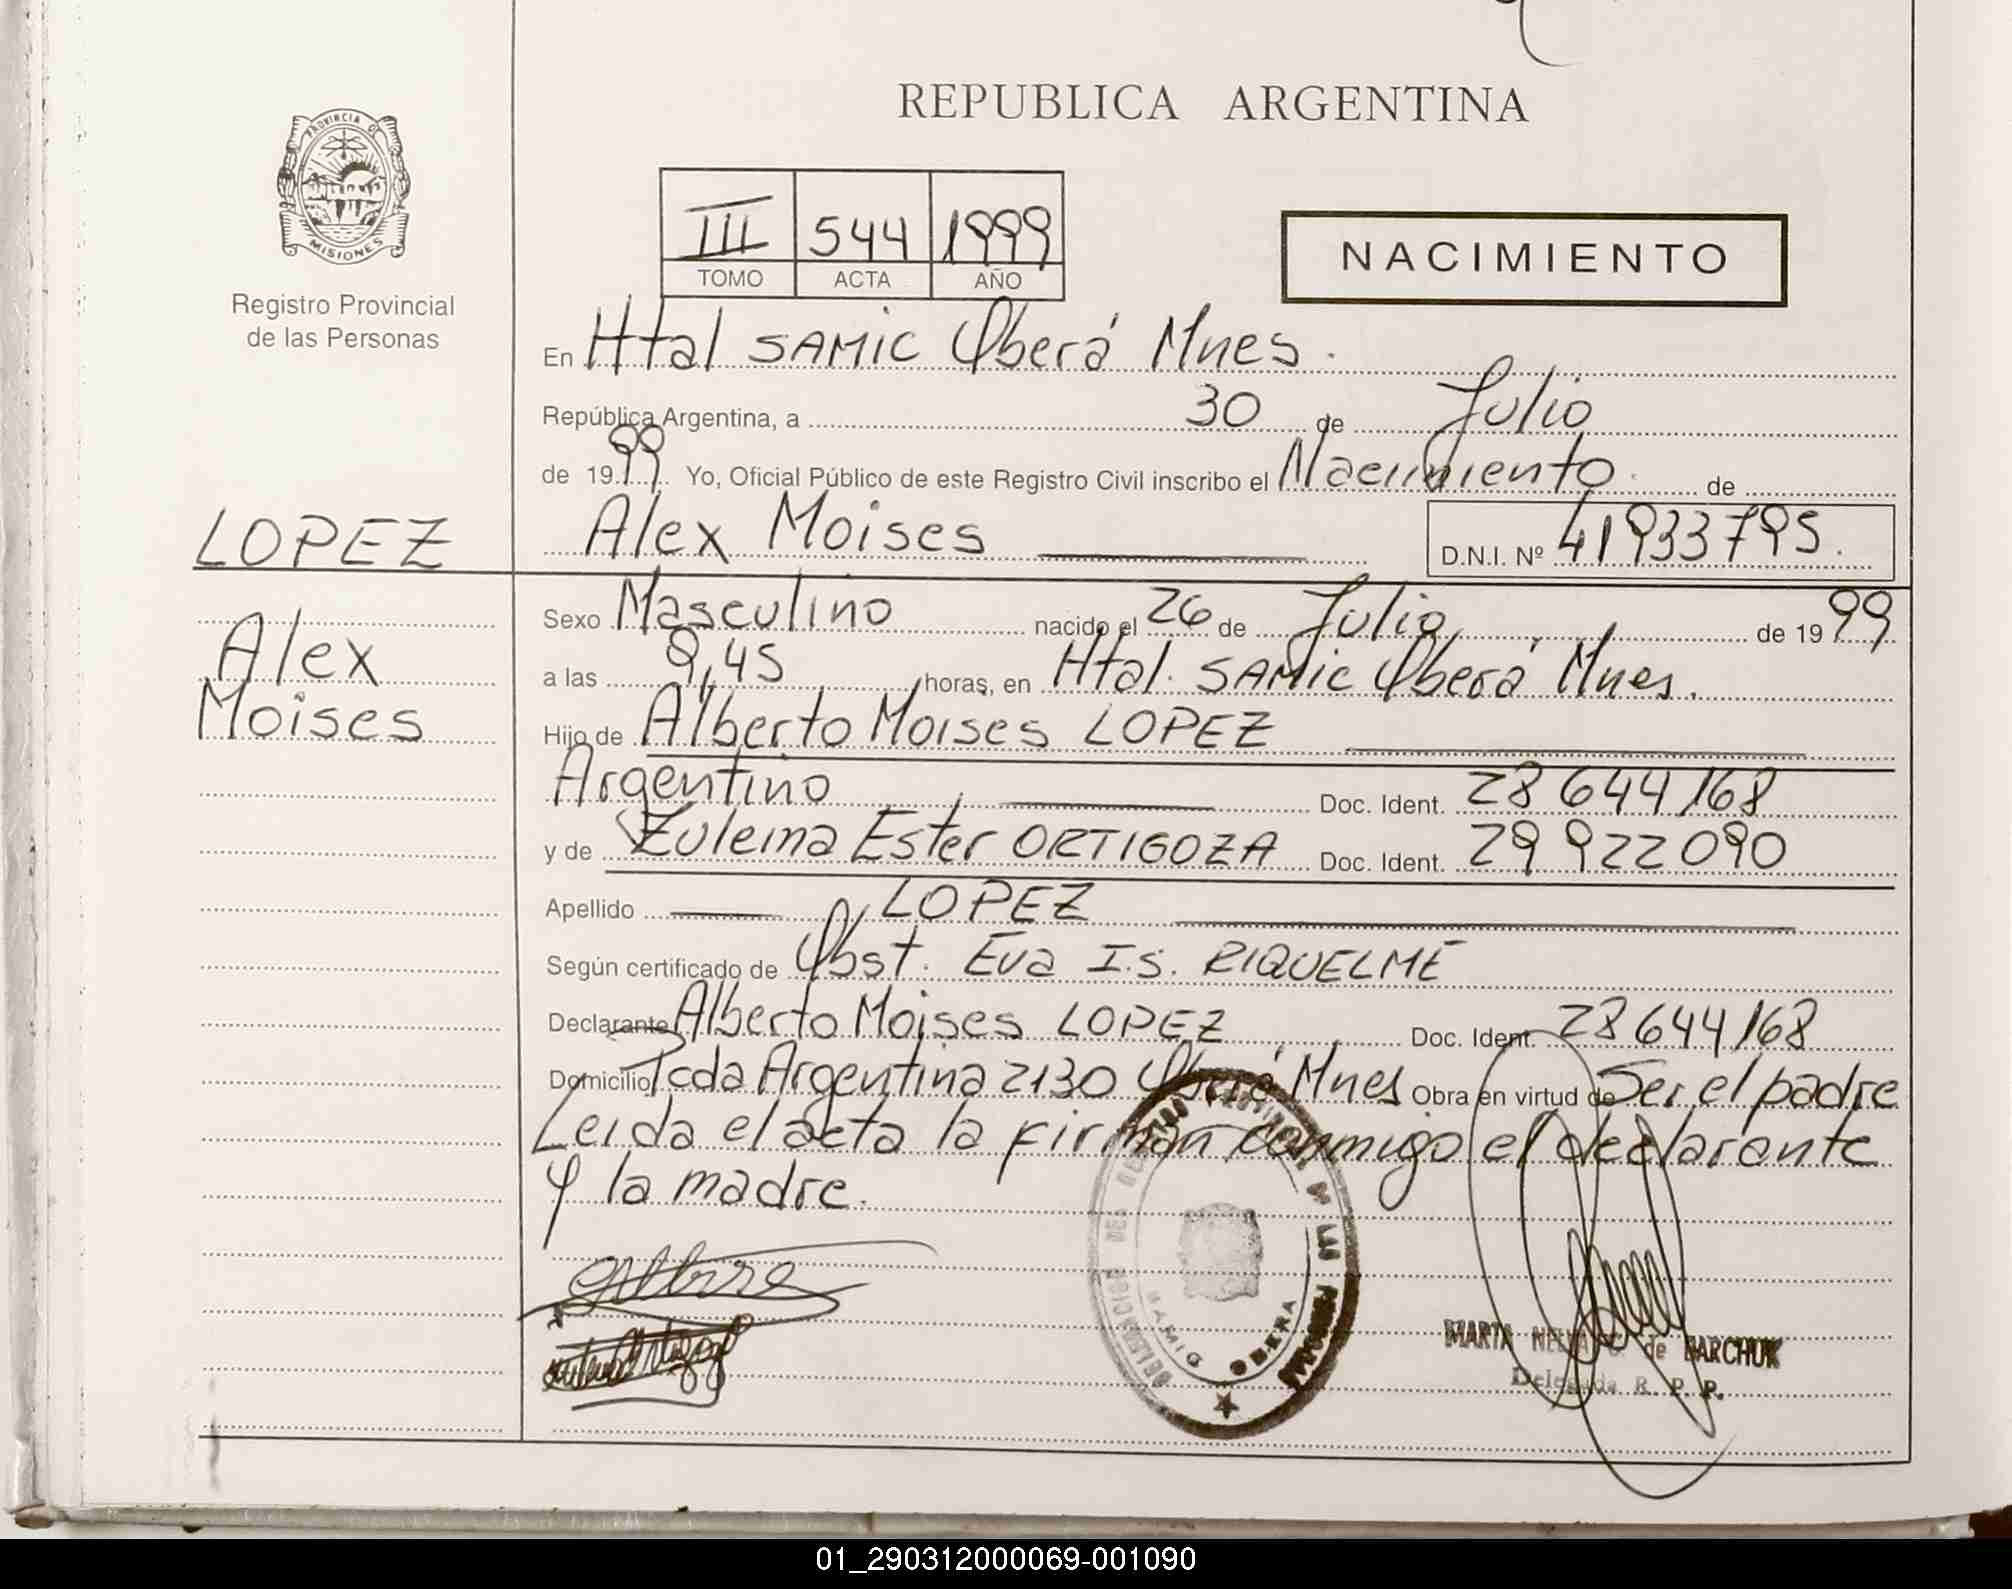 REPUBLICA ARGENTINA
PROVINCIA DE
MISIONES
Registro Provincial
de las Personas
III 544 1999
TOMO ACTA AÑO
NACIMIENTO
En Htal SAMIC Oberá Mnes.
República Argentina, a 30 de Julio
de 1999 Yo, Oficial Público de este Registro Civil inscribo el Nacimiento de
LOPEZ
Alex Moises D.N.I. Nº 41933795.
Alex
Moises
Sexo Masculino nacido el 26 de Julio de 1999
a las 9,45 horas, en Htal. SAMIC Oberá Mnes.
Hijo de Alberto Moises LOPEZ
Argentino Doc. Ident. 28644168
y de Zulema Ester ORTIGOZA Doc. Ident. 29922090
Apellido LOPEZ
Según certificado de Obst. Eva I.S. RIQUELME
Declarante Alberto Moises LOPEZ Doc. Ident. 28644168
Domicilio Pcda Argentina 2130 Oberá Mnes Obra en virtud de Ser el padre
Leida el acta la firman conmigo el declarante
y la madre.
SAMIC OBERA
MARTA de BARCHUK
Delegada R. P. P.
01_290312000069-001090